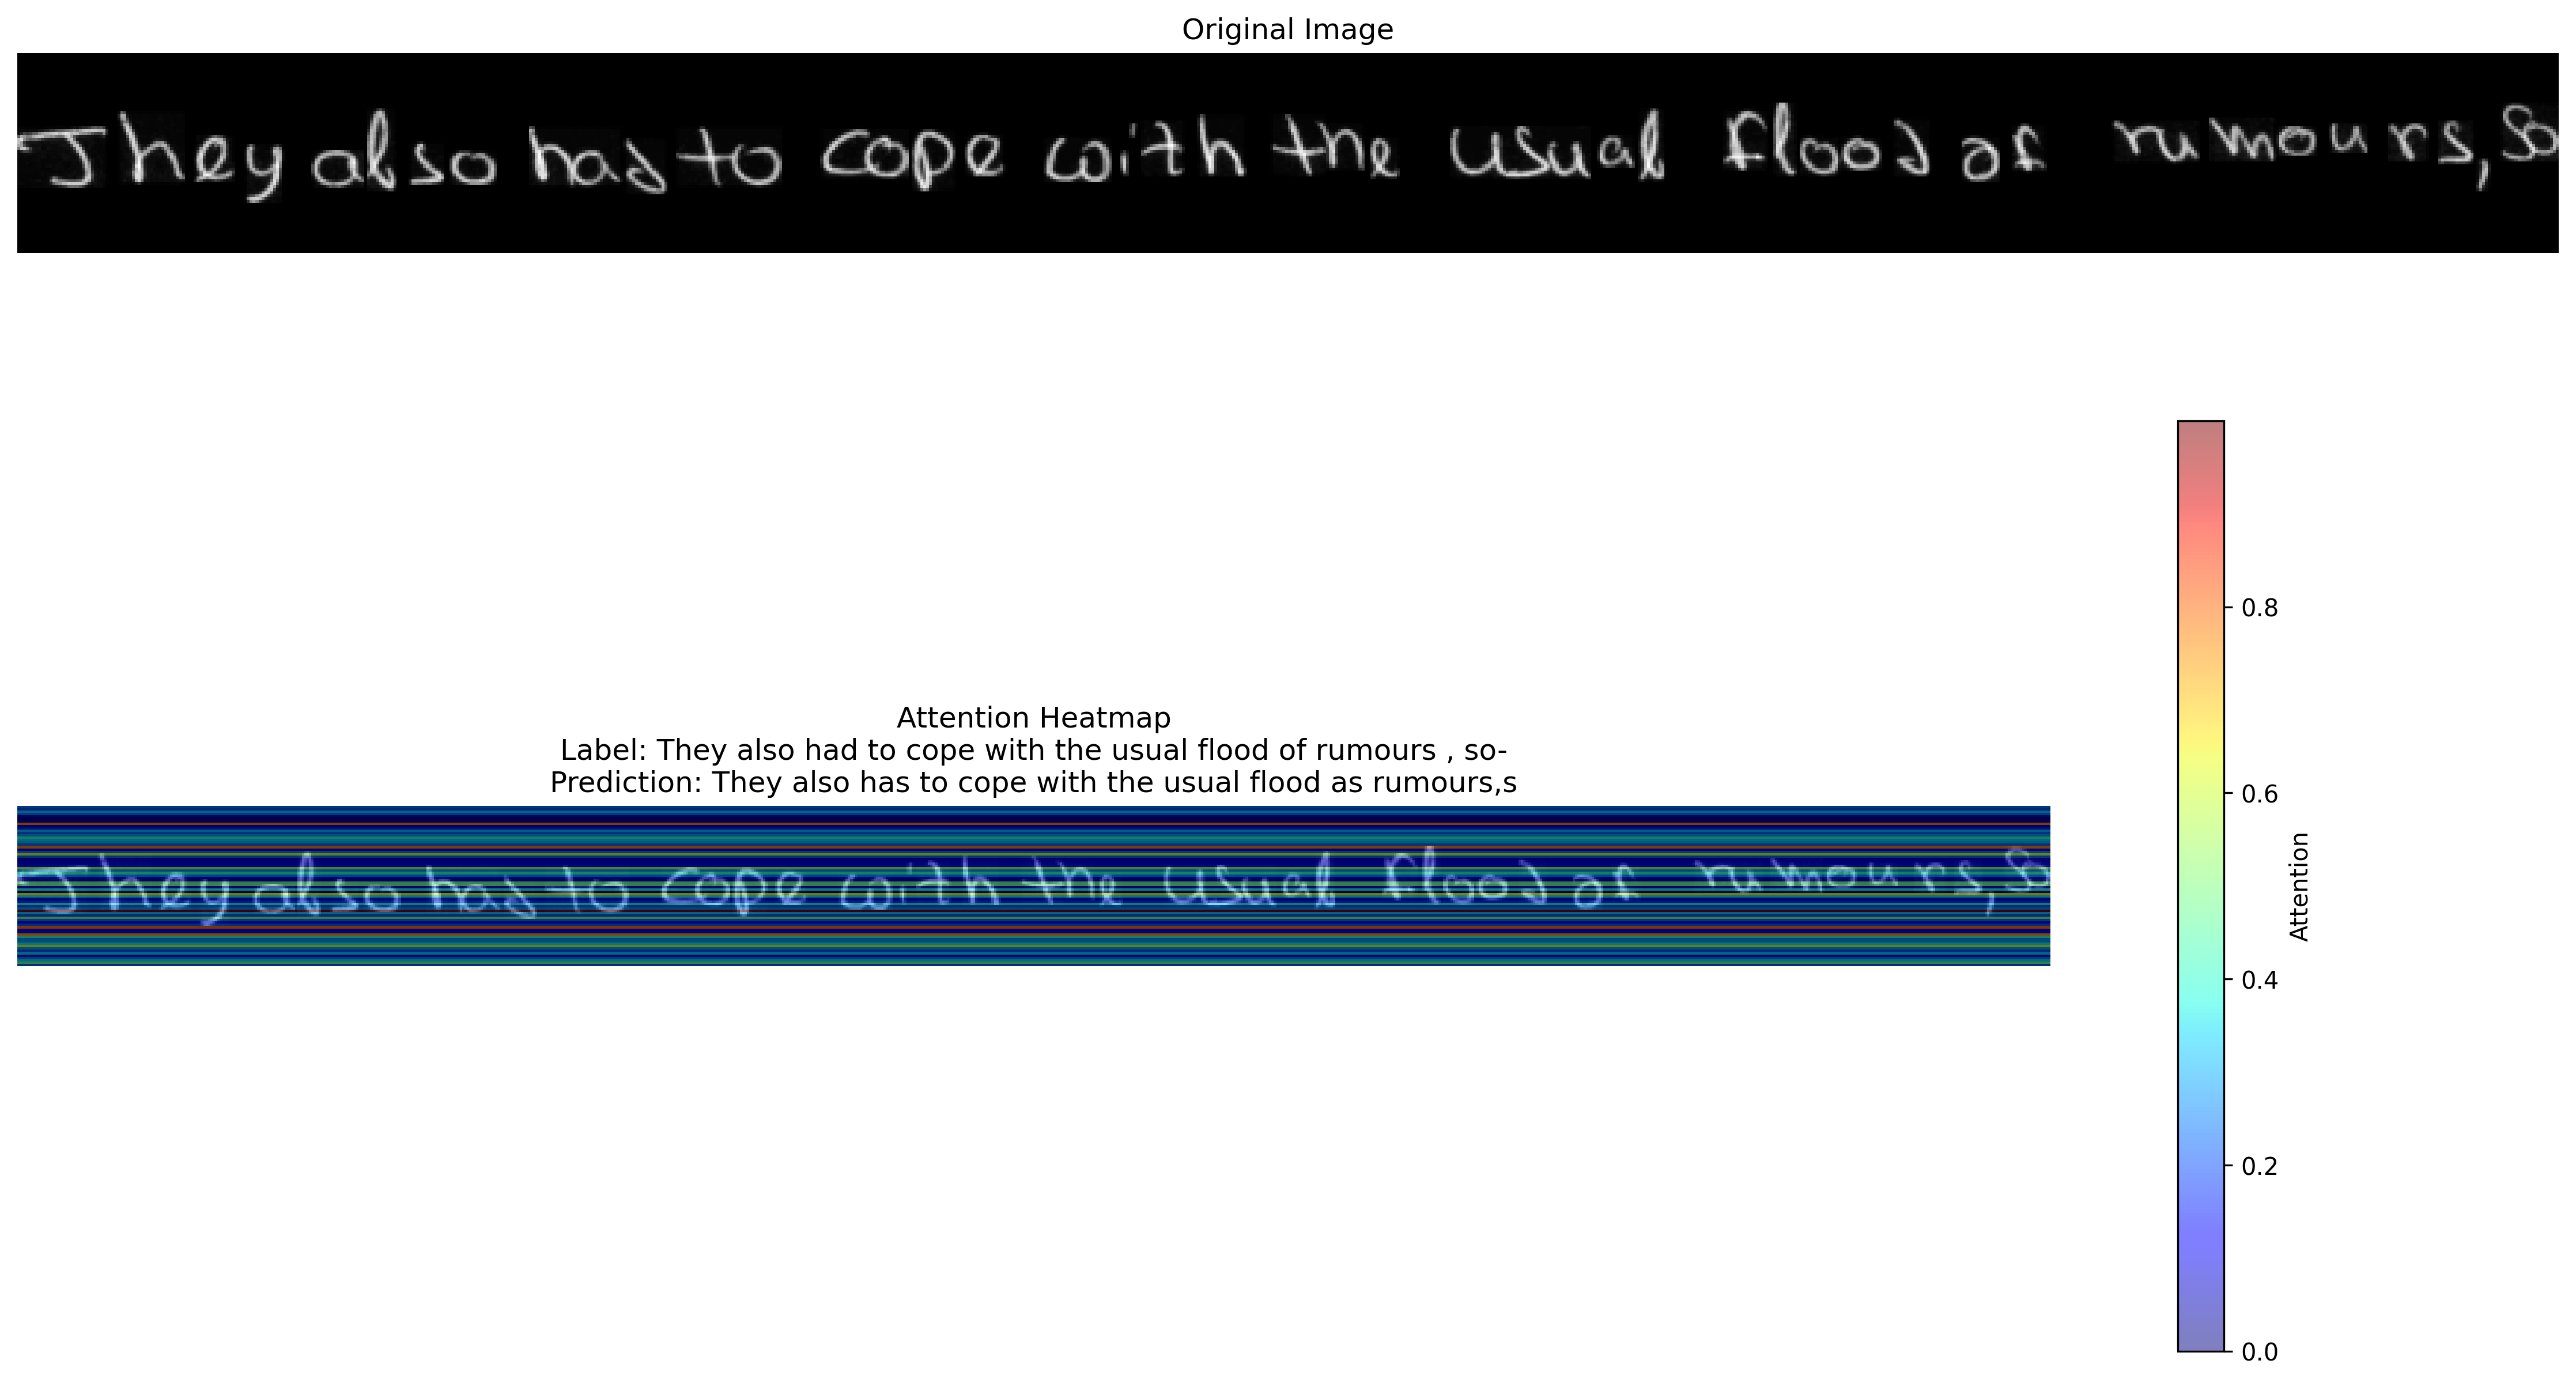 Original Image
They also had to cope with the usual flood of rumours, so
Attention Heatmap
Label: They also had to cope with the usual flood of rumours , so-
Prediction: They also has to cope with the usual flood as rumours,s
They also had to cope with the usual flood of rumours, so
0.8
0.6
0.4
0.2
0.0
Attention